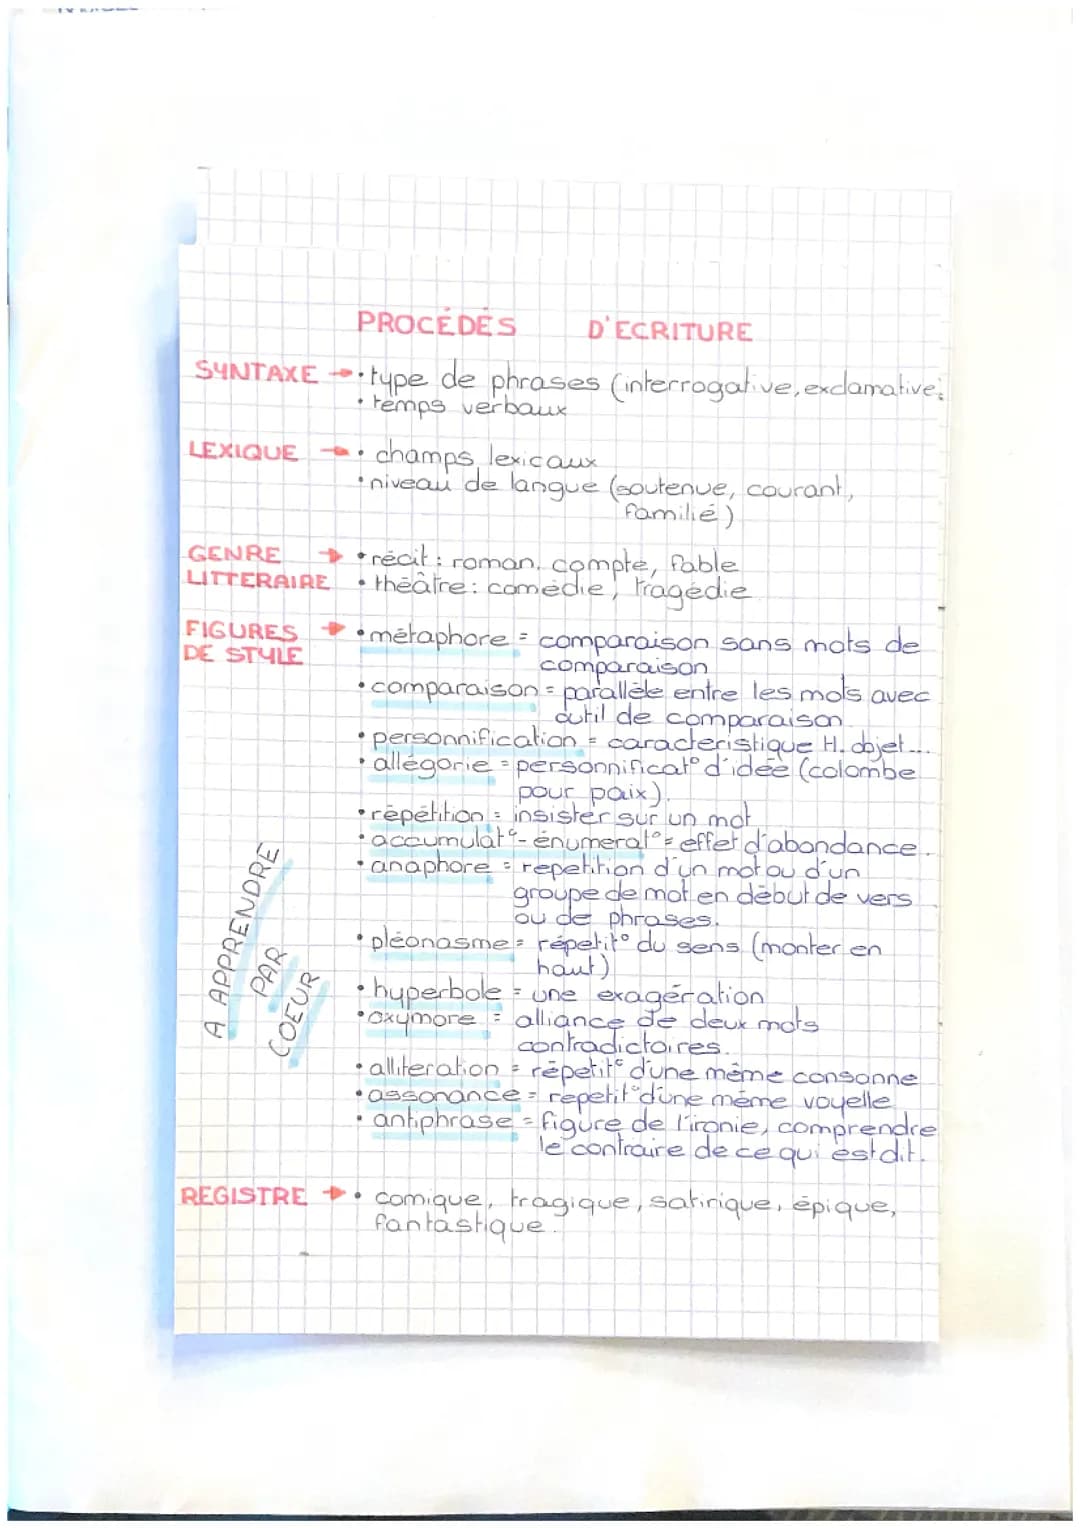 PROCÉDÉS D'ECRITURE
SYNTAXE → • type de phrases (interrogative, exclamative;
• temps verbaux
LEXIQUE → • champs lexicaux
• niveau de langue (soutenue, courant,
familié)
GENRE → • récit : roman, compte, fable
LITTERAIRE • théâtre : comédie, tragédie
FIGURES → • métaphore = comparaison sans mots de
DE STYLE comparaison
• comparaison = parallèle entre les mots avec
outil de comparaison.
• personnification = caracteristique H. objet...
• allégorie = personnificat° d'idée (colombe
pour paix).
• répétition = insister sur un mot
• accumulat° - énumerat° = effet d'abondance.
• anaphore = repetition d'un mot ou d'un
groupe de mot en début de vers
ou de phrases.
• pléonasme = répetit° du sens (monter en
haut)
• hyperbole = une exagération
• oxymore = alliance de deux mots
contradictoires.
• alliteration = répetit° d'une même consonne
• assonance = repetit° d'une même voyelle
• antiphrase = figure de l'ironie, comprendre
le contraire de ce qui est dit.
A APPRENDRE
PAR
COEUR
REGISTRE → • comique, tragique, satirique, épique,
fantastique.